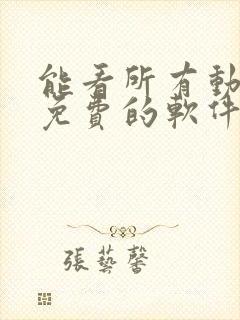 能看所有動
免費的軟件
張藝馨